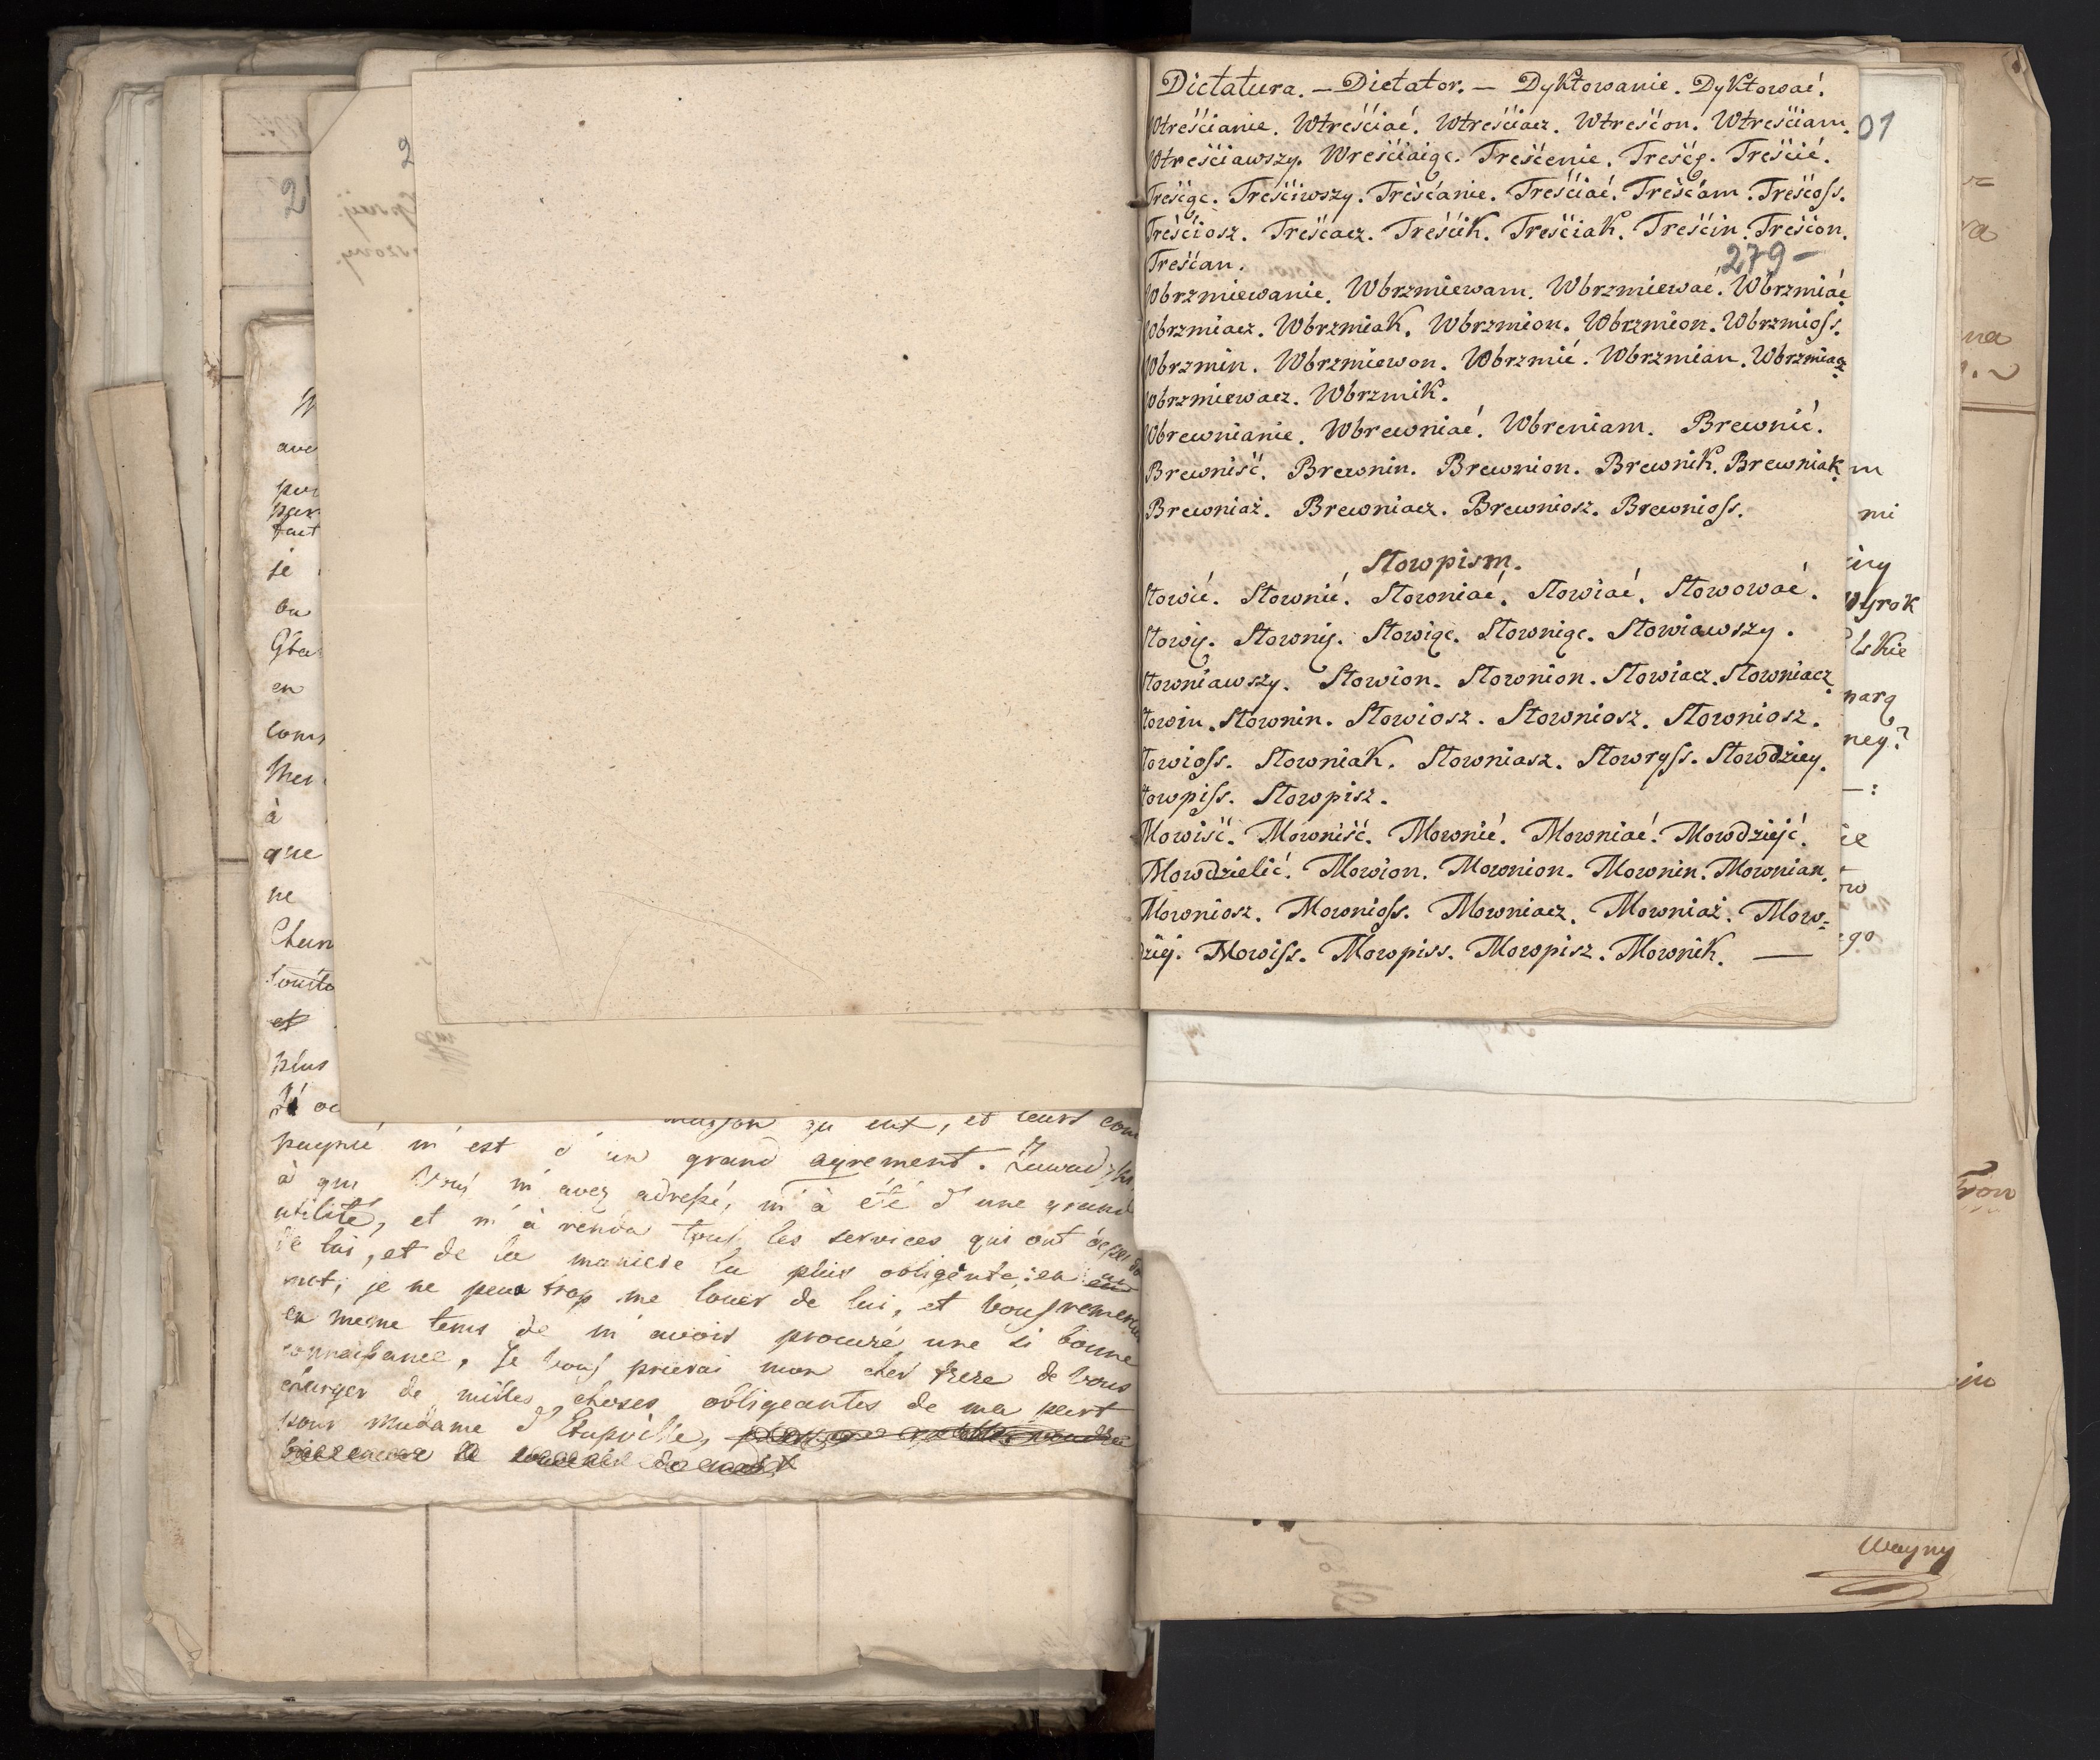 Dictatura. — Dictator. — Dyktowanie. Dyktować.
Wtreścianie. Wtreściać. Wtreściacz. Wtreścion. Wtreściam.
Wtreściawszy. Wreściaiąc. Treścenie. Treścę. Treścić.
Treścąc. Treściwszy. Treśćanie. Treściać. Treśćam. Treścoss.
Treściosz. Treścacz. Treścik. Treściak. Treścin. Treścion.
Treśćan.
279 —
Wbrzmiewanie. Wbrzmiewam. Wbrzmiewać. Wbrzmiać
Wbrzmiacz. Wbrzmiak. Wbrzmion. Wbrzmion. Wbrzmioss.
Wbrzmin. Wbrzmiewon. Wbrzmić. Wbrzmian. Wbrzmiacz
Wbrzmiewacz. Wbrzmik.
Wbrewnianie. Wbrewniać. Wbreniam. Brewnić.
Brewniść. Brewnin. Brewnion. Brewnik. Brewniak
Brewniaż. Brewniacz. Brewniosz. Brewnioss.
Słowpism.
Słowić. Słownić. Słowniać. Słowiać. Słowować.
Słowię. Słownię. Słowiąc. Słowniąc. Słowiawszy.
Słowniawszy. Słowion. Słownion. Słowiacz. Słowniacz
Słowin. Słownin. Słowiosz. Słowniosz. Słowniosz.
Słowioss. Słowniak. Słowniasz. Słowryss. Słowdziey.
Słowpiss. Słowpisz.
Mowiść. Mowniść. Mownić. Mowniać. Mowdziejć.
Mowdzielić. Mowion. Mownion. Mownin. Mownian.
Mowniosz. Mownioss. Mowniacz. Mowniaż. Mow=
dziej. Mowiss. Mowpiss. Mowpisz. Mownik. —
01
mi
wyrok
lskie
ney?
2
ave
je
en
à
que
ne
et
plus
eux, et leurs com
m'est d'un grand agrement.
à qui Vous m'avez adressé, m'à été d'une grande
utilité, et m'à rendu tous les services qui ont
de lui, et de la maniere la plus obligente: en un
mot, je ne peux trop me louer de lui, et Vous remercie
en meme tems de m'avoir procuré une si bonne
connaissance, je Vous prierai mon cher frere de Vous
charger de milles choses obligeantes de ma part
pour Madame